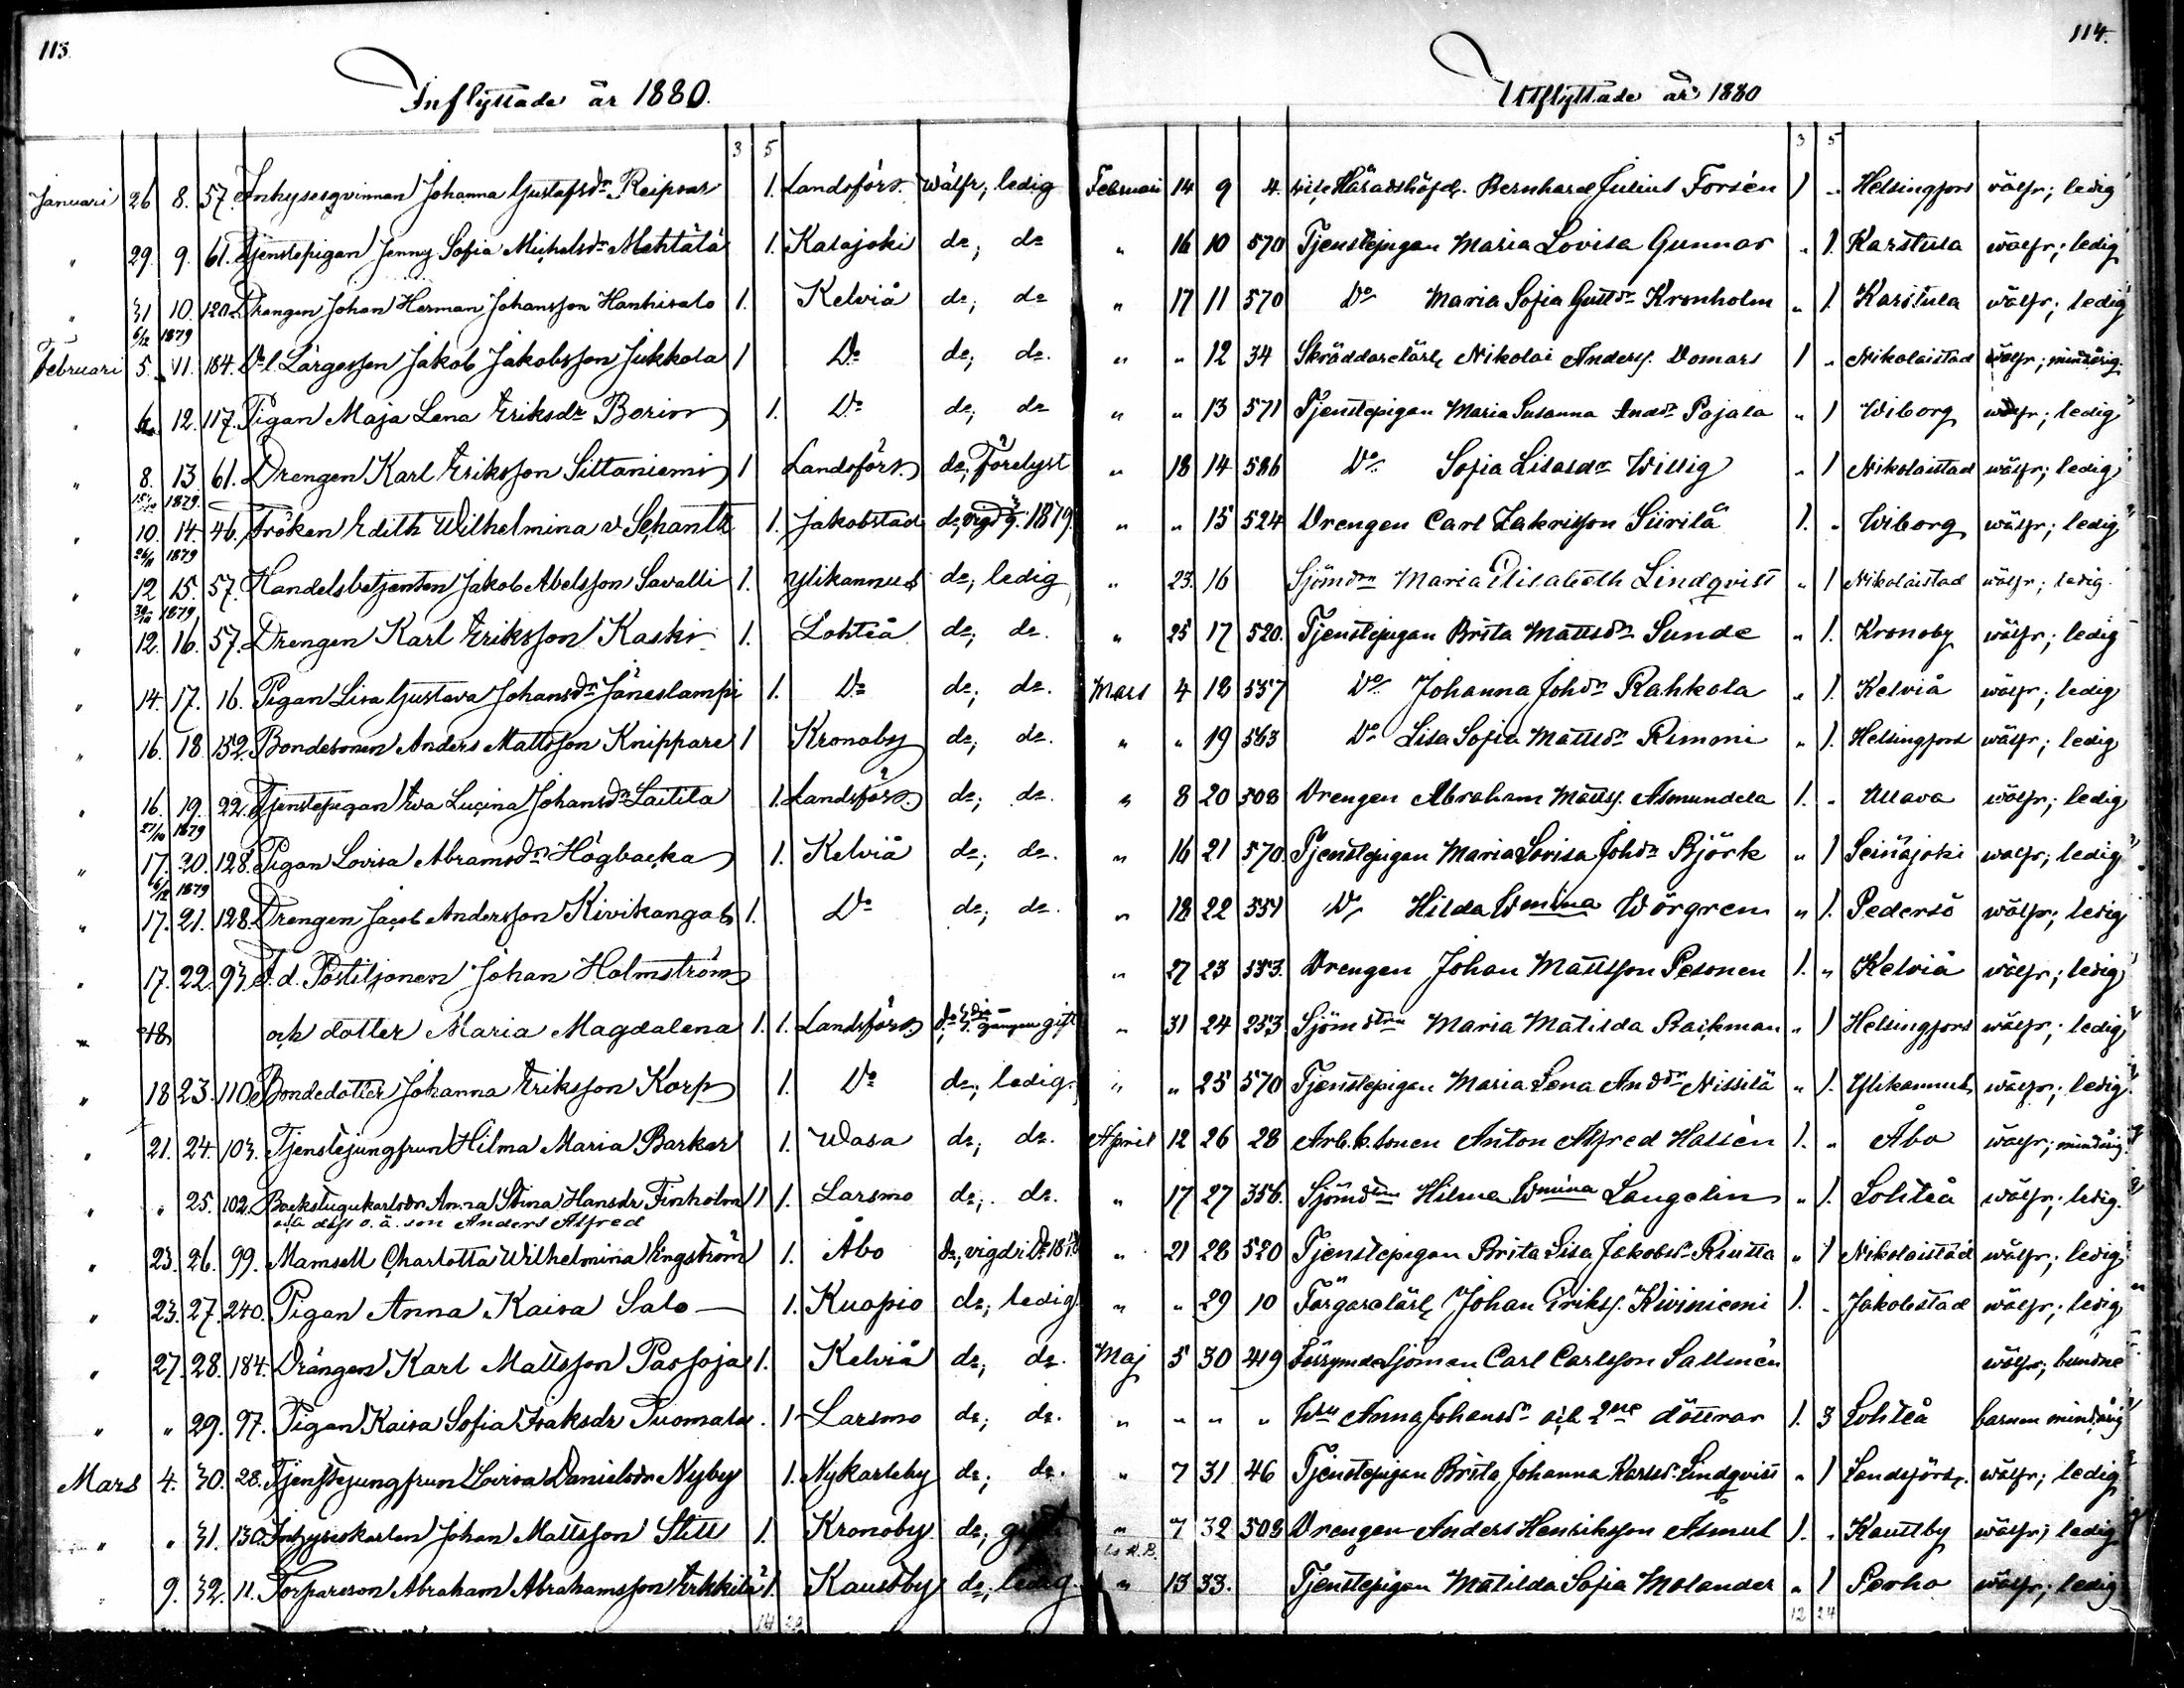 113.
Inflyttade år 1880.
3 5
Januari 26 8. 57. Inhysesqvinnan Johanna Gustafsdr Reipsar 1. Landsförs. wälfr; ledig
" 29. 9. 61. Tjenstepigan Jenny Sofia Michelsdr Mehtälä 1. Kalajoki do; do
" 31 10. 120. Drengen Johan Herman Johansson Hanhisalo 1. Kelviå do; do
6/12 1879
Februari 5. 11. 184. Do l. Largesson Jakob Jakobsson Jukkola 1 Do do; do.
" 6. 12. 117. Pigan Maja Lena Eriksdr Borim 1. Do do; do
" 8. 13. 61. Drengen Karl Eriksson Siltaniemi 1 Landsförs. do; Förelyst
1879.
" 10. 14. 46. Fröken Edith Wilhelmina v. Schantz 1. Jakobstad do; 1879.
26/11 1879
" 12 15. 57. Handelsbetjenten Jakob Abelsson Savalli 1. Ylikannus do; ledig
30/10 1879
" 12. 16. 57. Drengen Karl Eriksson Kaski 1. Lohteå do; do.
" 14. 17. 16. Pigan Lisa Gustava Johansdr Jäneslampi 1. Do do; do.
" 16. 18 152. Bondesonen Anders Mattsson Knippare 1 Kronoby do; do.
" 16. 19. 22. Tjenstepigan Eva Lucina Johansdr Laitila 1. Landsförs. do; do.
27/10 1879
" 17. 20. 128. Pigan Lovisa Abramsdr Högbacka 1. Kelviå do; do.
6/12 1879
" 17. 21. 128. Drengen Jacob Andersson Kivikangas 1. Do do; do.
" 17. 22. 93. F. d. Postiljonen Johan Holmström
" 18 och dotter Maria Magdalena 1. 1. Landsförs. gången gift
" 18 23. 110. Bondedotter Johanna Eriksson Korp 1. Do do; ledig.
" 21. 24. 103. Tjenstejungfrun Hilma Maria Barker 1. Wasa do; do.
" " 25. 102. Backstugukarlsdr Anna Stina Hansdr Finholm 1 1. Larsmo do; do.
och dess o. ä. son Anders Alfred
" 23. 26. 99. Mamsell Charlotta Wilhelmina Engström 1. Åbo do; vigd
" 23. 27. 240. Pigan Anna Kaisa Salo 1. Kuopio do; ledig.
" 27. 28. 184. Drängen Karl Mattsson Passoja 1. Kelviå do; do.
" " 29. 97. Pigan Kaisa Sofia Isaksdr Tuomala 1 Larsmo do; do.
Mars 4. 30. 28. Tjenstejungfrun Lovisa Danielsdr Nyby 1. Nykarleby do; do.
" " 31. 130. Inhyseskarlen Johan Mattsson Slett 1. Kronoby do; gift
" 9. 32. 11. Torpareson Abraham Abrahamsson Erkkilä 1. Kaustby do; ledig.
14 20
114.
Utflyttade år 1880
3 5
Februari 14 9 4. vice Häradshöfd. Bernhard Julius Forsén 1 " Helsingfors wälfr; ledig
" 16 10 570 Tjenstepigan Maria Lovisa Gunnar " 1. Karstula wälfr; ledig
" 17 11 570 Do Maria Sofia Gustdr Kronholm " 1. Karstula wälfr; ledig
" " 12 34 Skräddarelärl. Nikolai Anders. Domars 1 " Nikolaistad wälfr; minderårig.
" " 13 571 Tjenstepigan Maria Susanna Anddr Pajala " 1 Wiborg wälfr; ledig
" 18 14 586 Do Sofia Lisasdr Willig " 1 Nikolaistad wälfr; ledig
" " 15 524 Drengen Carl Zakrisson Siirilä 1. " Wiborg wälfr; ledig
" 23. 16 Sjömdr Maria Elisabeth Lindqvist " 1 Nikolaistad wälfr; ledig.
" 25 17 520. Tjenstepigan Brita Mattsdr Sunde " 1. Kronoby wälfr; ledig
Mars 4 18 557 Do Johanna Johdr Rahkola " 1. Kelviå wälfr; ledig
" " 19 563 Do Lisa Sofia Mattsdr Rimmi " 1. Helsingfors wälfr; ledig
" 8 20 508 Drengen Abraham Matts. Asmundela 1. " Ullava wälfr; ledig
" 16 21 570. Tjenstepigan Maria Lovisa Johdr Björk " 1 Seinäjoki wälfr; ledig
" 18 22 551 Do Hilda Wmina Wörgren " 1. Pedersö wälfr; ledig
" 27 23 553. Drengen Johan Mattsson Pesonen 1. " Kelviå wälfr; ledig
" 31 24 253 Sjömdtrn Maria Matilda Backman " 1 Helsingfors wälfr; ledig
" " 25 570 Tjenstepigan Maria Lena Anddr Nissilä " 1. Ylikannus wälfr; ledig.
April 12 26 28 Arb. k. sonen Anton Alfred Hassén 1. " Åbo wälfr; minderårig
" 17 27 356. Sjömdtrn Hilma Wmina Langelin " 1. Lohteå wälfr; ledig.
" 21 28 520 Tjenstepigan Brita Lisa Jakobsdr Riutta " 1 Nikolaistad wälfr; ledig
" " 29 10 Färgarelärl. Johan Eriks. Kiviniemi 1. " Jakobstad wälfr; ledig
Maj 5 30 419 Förrymde Sjöman Carl Carlsson Sallmén wälfr; bundne
" " " " Hru Anna Johansdr och 2ne döttrar 1. 3 Lohteå barnen minderårig
" 7 31 46 Tjenstepigan Brita Johanna Karlsd. Lindqvist " 1 Landsförs. wälfr; ledig
" 7 32 508 Drengen Anders Henriksson Åsmus 1. " Kaustby wälfr; ledig
" 13 33. Tjenstepigan Matilda Sofia Molander " 1 Perho wälfr; ledig
12 24